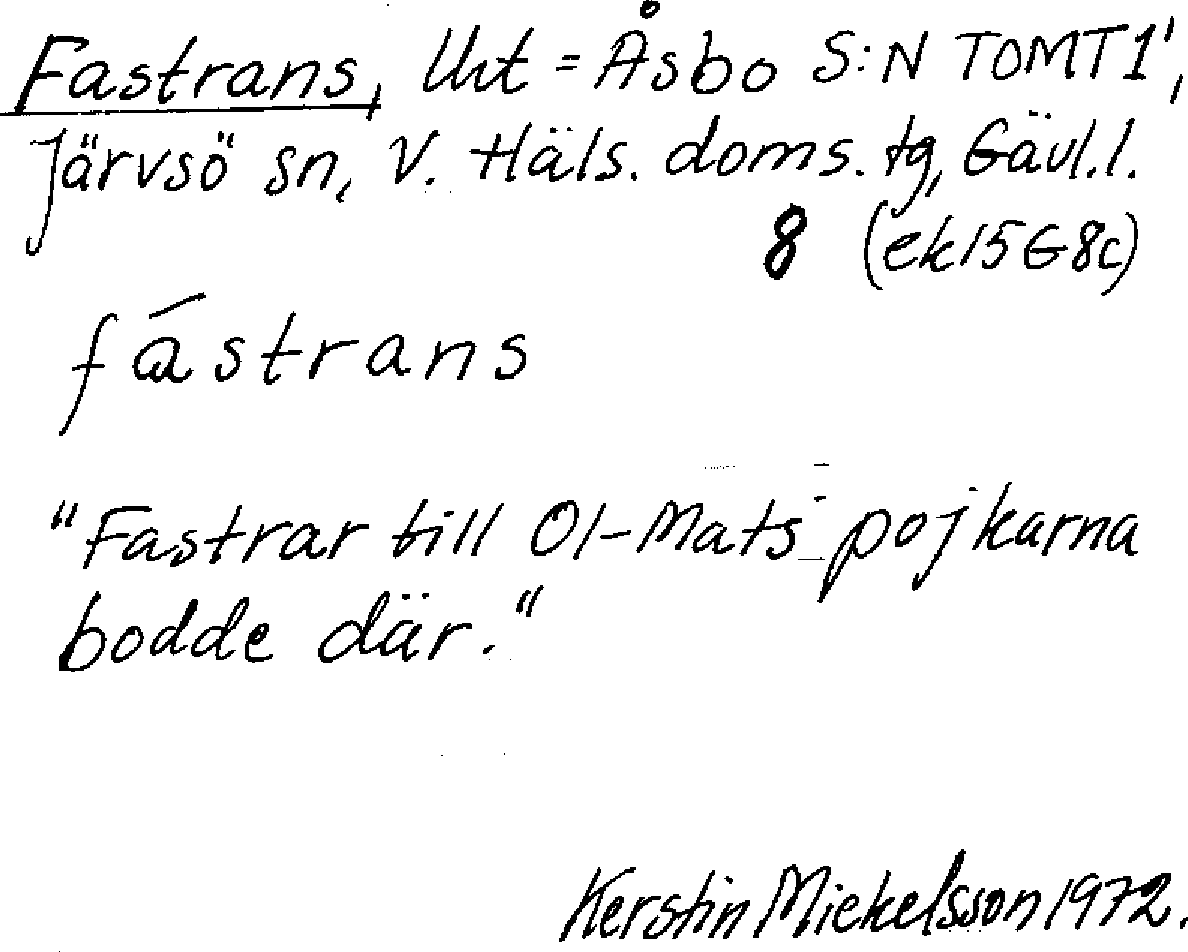 Fastrans, Uht = Åsbo S:N TOMT1',
Järvsö sn, V. Häls. doms. tg, Gävl.l.
8 (ek 15G8c)
fástrans
"Fastrar till Ol-Mats-pojkarna
bodde där."
Kerstin Mickelsson 1972.